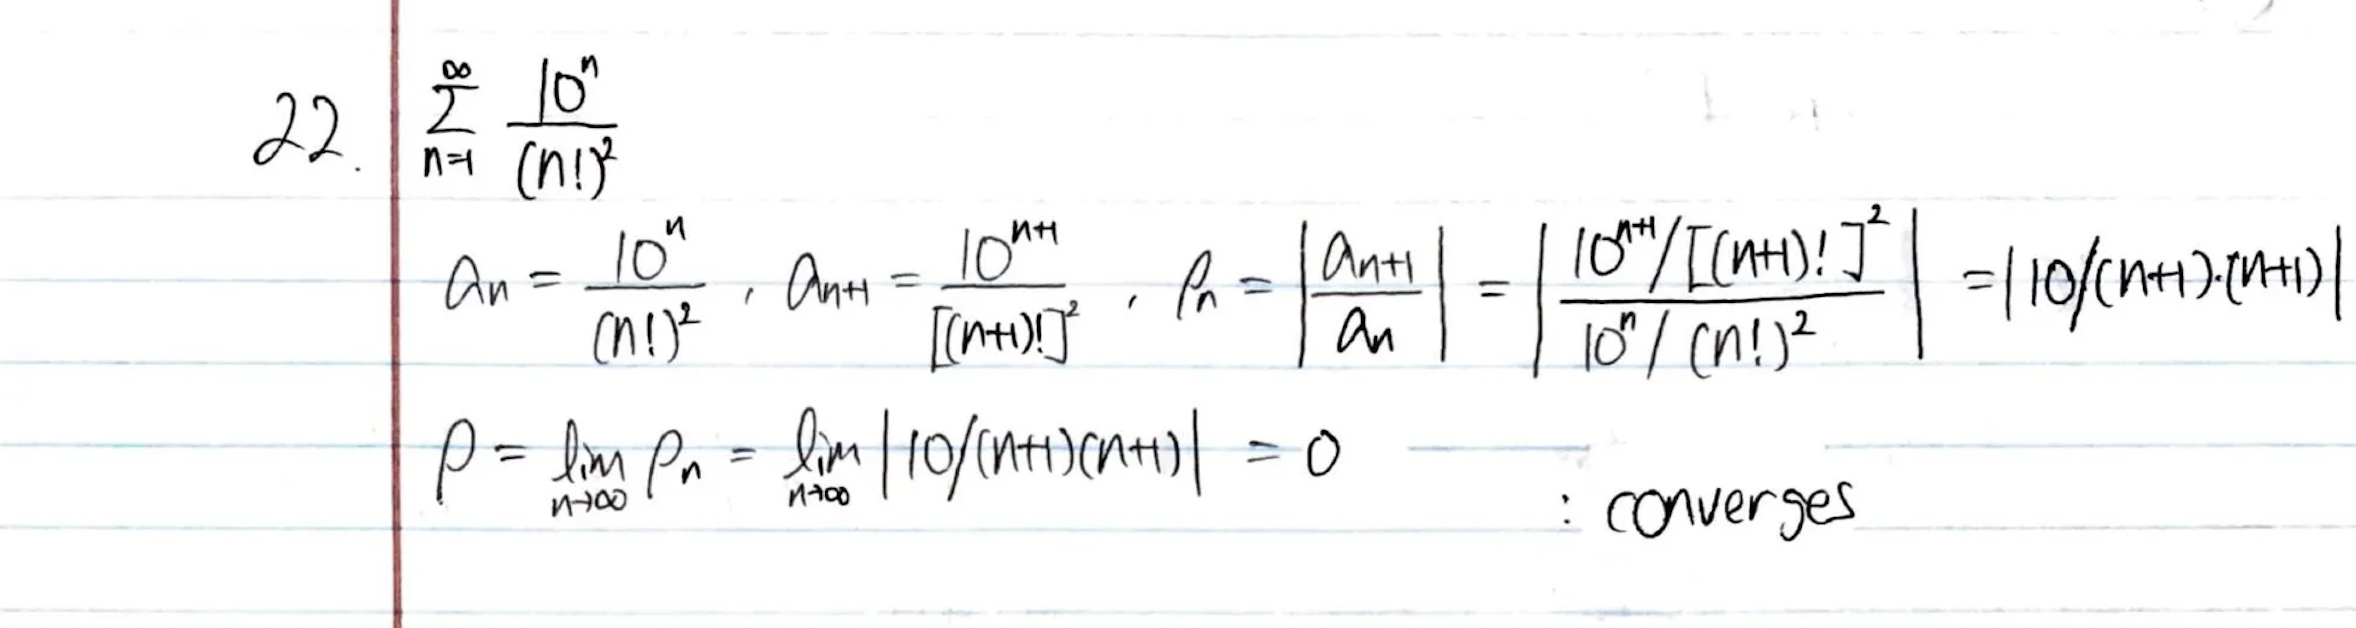 22. ∑_{n=1}^{∞} 10ⁿ/(n!)²
aₙ = 10ⁿ/(n!)² , aₙ₊₁ = 10ⁿ⁺¹/[(n+1)!]² , ρₙ = |aₙ₊₁/aₙ| = |(10ⁿ⁺¹/[(n+1)!]²)/(10ⁿ/(n!)²)| = |10/(n+1)·(n+1)|
ρ = lim_{n→∞} ρₙ = lim_{n→∞} |10/(n+1)(n+1)| = 0
: converges